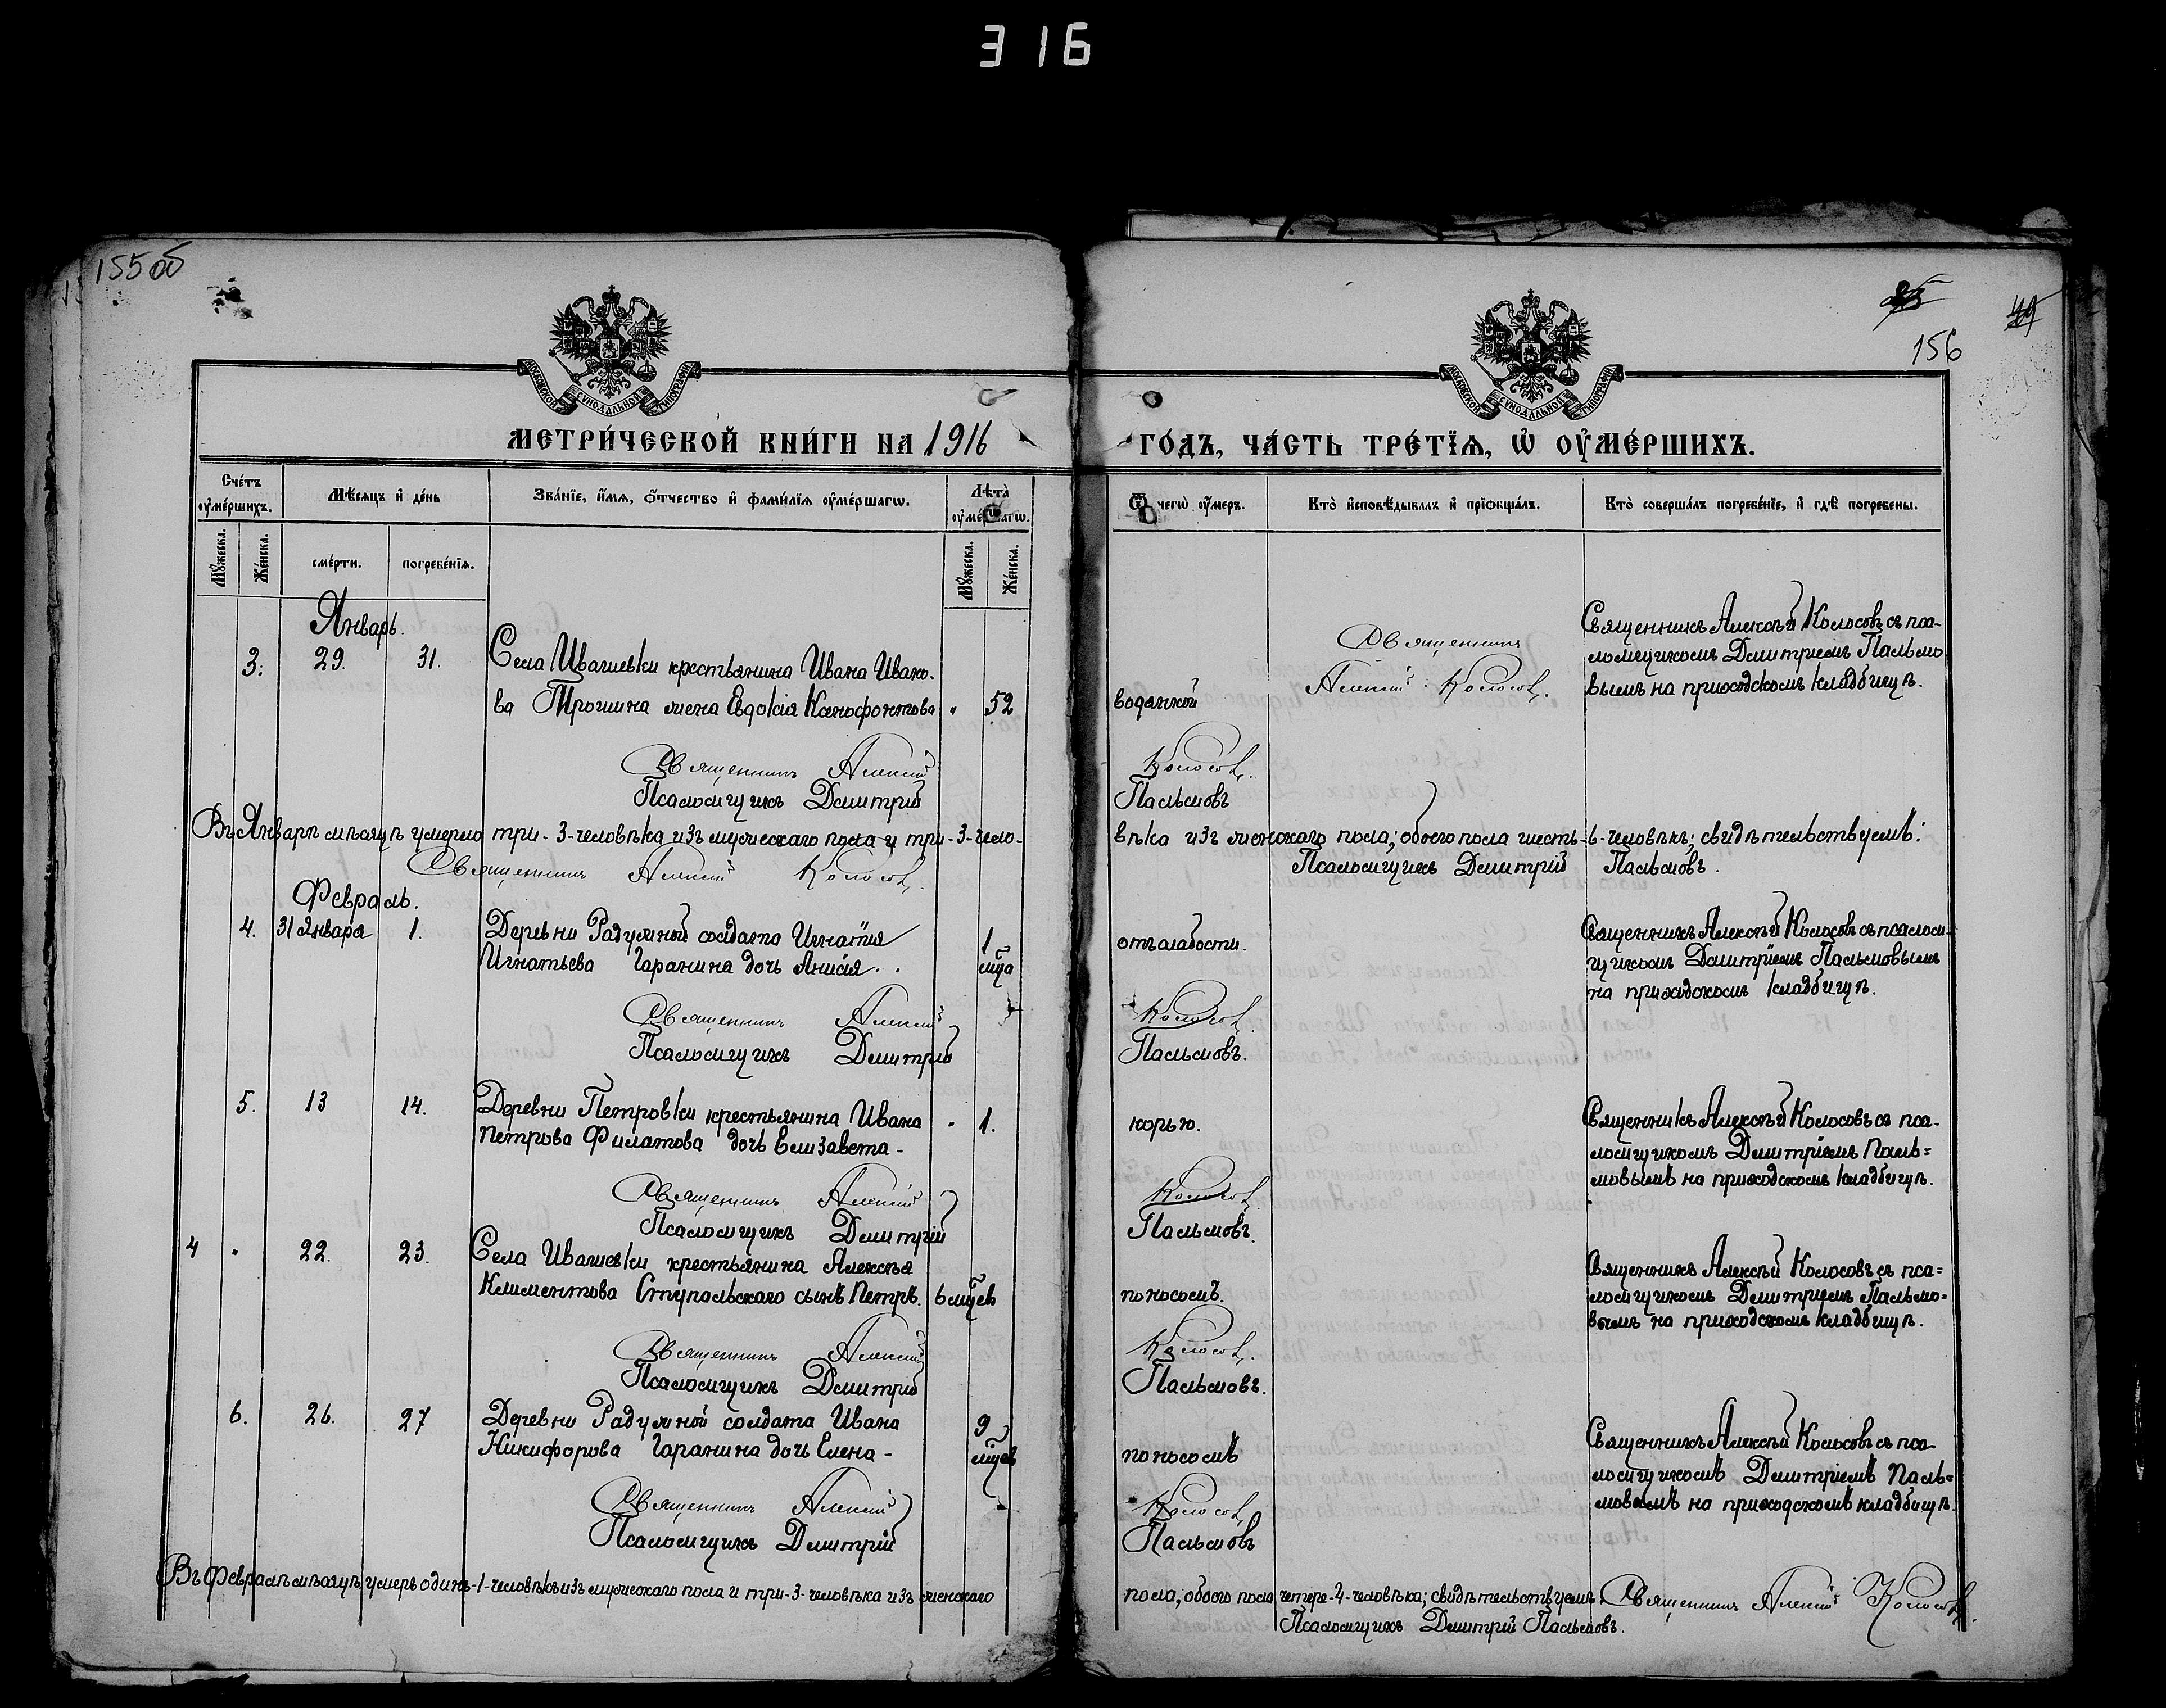 316
155об
25
49
156
МОСКОВСКОЙ СѴНОДАЛЬНОЙ ТИПОГРАФІИ
МОСКОВСКОЙ СѴНОДАЛЬНОЙ ТИПОГРАФІИ
МЕТРИ́ЧЕСКОЙ КНИ́ГИ НА 1916 ГО́ДЪ, ЧА́СТЬ ТРЕ́ТЇѦ, Ѡ҆ ОУ҆МЕ́РШИХЪ.
Сче́тъ оу҆ме́ршихъ.
Мѣ́сяцъ и҆ де́нь
Зва́нїе, и҆́мѧ, ѻ҆́тчество и҆ фами́лїѧ оу҆ме́ршагѡ.
Лѣ́та оу҆ме́ршагѡ.
Ѿ чегѡ̀ оу҆́меръ.
Кто̀ и҆сповѣ́дывалъ и҆ прїѡбща́лъ.
Кто̀ соверша́лъ погребе́нїе, и҆ гдѣ̀ погребены.
Мꙋ́жеска.
Же́нска.
сме́рти.
погребе́нїѧ.
Мꙋ́жеска.
Же́нска.
Январь.
3. 29. 31. Села Ивашевки крестьянина Ивана Ивано-
ва Трошина жена Евдокія Ксенофонтова " 52 водянкой
Священникъ
Алексій Колосовъ.
Священникъ Алексѣй Колосовъ съ пса-
ломщикомъ Димитріемъ Пальмо
вымъ на приходскомъ кладбищѣ.
Священникъ Алексій Колосовъ.
Псаломщикъ Димитрій Пальмовъ
Въ Январѣ мѣсяцѣ умерло три-3-человѣка изъ мужескаго пола и три-3-чело-
вѣка изъ женскаго пола; обоего пола шесть-6-человѣкъ; свидѣтельствуемъ:
Священникъ Алексій Колосовъ.
Псаломщикъ Димитрій Пальмовъ.
Февраль.
4. 31 Января 1. Деревни Радужной солдата Игнатія
Игнатьева Гаранина дочь Анисія. . 1 мѣца
отъ слабости.
Священникъ Алексѣй Колосовъ съ псалом-
щикомъ Димитріемъ Пальмовымъ
на приходскомъ кладбищѣ.
Священникъ Алексій Колосовъ.
Псаломщикъ Димитрій Пальмовъ.
5. 13 14. Деревни Петровки крестьянина Ивана
Петрова Филатова дочь Елизавета - " 1. корью.
Священникъ Алексѣй Колосовъ съ пса-
ломщикомъ Димитріемъ Паль=
мовымъ на приходскомъ кладбищѣ.
Священникъ Алексій Колосовъ.
Псаломщикъ Димитрій Пальмовъ.
4 " 22. 23. Села Ивашевки крестьянина Алексѣя
Климентова Ступальскаго сынъ Петръ. 6 мѣцевъ
поносомъ.
Священникъ Алексѣй Колосовъ съ пса=
ломщикомъ Димитріемъ Пальмо=
вымъ на приходскомъ кладбищѣ.
Священникъ Алексій Колосовъ.
Псаломщикъ Димитрій Пальмовъ.
6. 26. 27 Деревни Радужной солдата Ивана
Никифорова Гаранина дочь Елена - 9 мѣцевъ
поносомъ
Священникъ Алексѣй Колосовъ съ пса-
ломщикомъ Димитріемъ Паль=
мовымъ на приходскомъ кладбищѣ.
Священникъ Алексій Колосовъ,
Псаломщикъ Димитрій Пальмовъ
Въ Февралѣ мѣсяцѣ умеръ одинъ-1-человѣкъ изъ мужескаго пола и три-3-человѣка изъ женскаго
пола, обоего пола четере-4-человѣка; свидѣтельствуемъ. Священникъ Алексій Колосовъ.
Псаломщикъ Димитрій Пальмовъ.